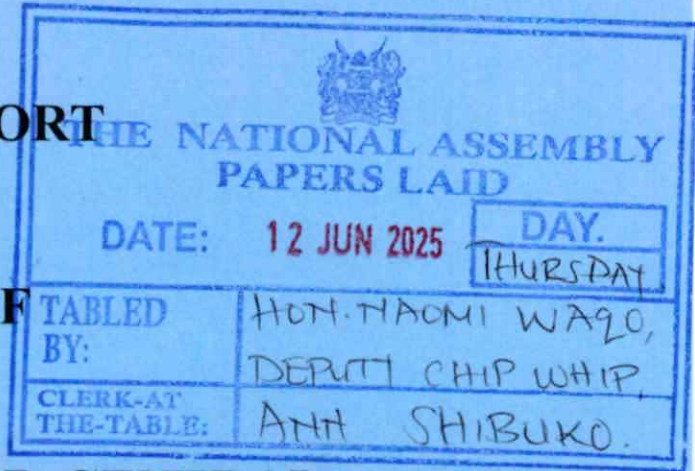 ORT
THE NATIONAL ASSEMBLY
PAPERS LAID
DATE: 12 JUN 2025 DAY.
THURSDAY
F
TABLED BY: HON. NAOMI WAQO,
DEPUTY CHIP WHIP
CLERK-AT THE-TABLE: ANN SHIBUKO.